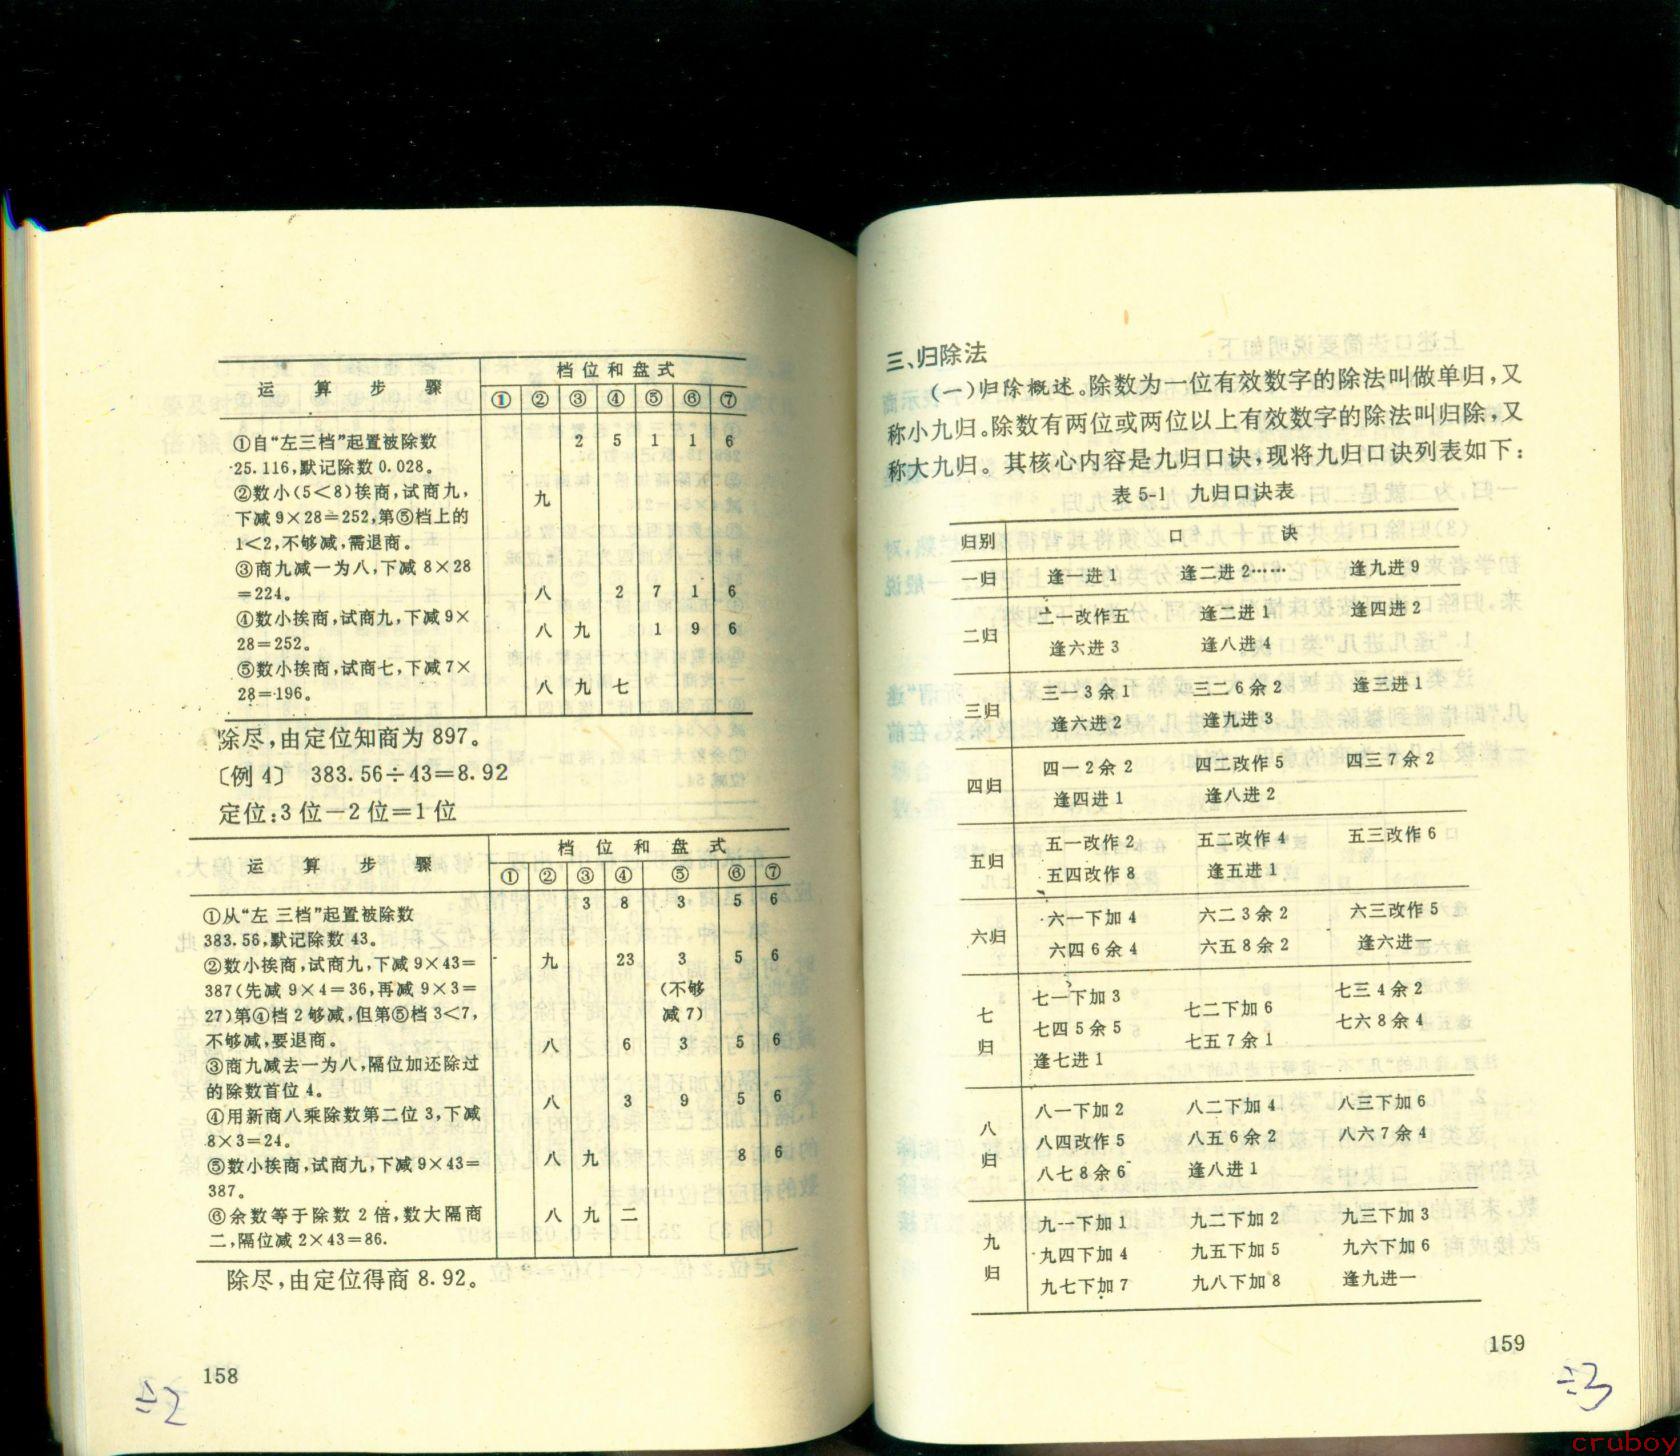 运 算 步 骤
档位和盘式
① ② ③ ④ ⑤ ⑥ ⑦
①自“左三档”起置被除数 2 5 1 1 6
25.116,默记除数0.028。
②数小(5<8)挨商,试商九, 九
下减9×28=252,第⑤档上的
1<2,不够减,需退商。
③商九减一为八,下减8×28
=224。 八 2 7 1 6
④数小挨商,试商九,下减9× 八 九 1 9 6
28=252。
⑤数小挨商,试商七,下减7×
28=196。 八 九 七
除尽,由定位知商为897。
〔例4〕 383.56÷43=8.92
定位:3位-2位=1位
运 算 步 骤
档 位 和 盘 式
① ② ③ ④ ⑤ ⑥ ⑦
①从“左 三档”起置被除数 3 8 3 5 6
383.56,默记除数43。
②数小挨商,试商九,下减9×43= 九 23 3 5 6
387(先减9×4=36,再减9×3= (不够
27)第④档2够减,但第⑤档3<7, 减7)
不够减,要退商。 八 6 3 5 6
③商九减去一为八,隔位加还除过
的除数首位4。
④用新商八乘除数第二位3,下减 八 3 9 5 6
8×3=24。
⑤数小挨商,试商九,下减9×43= 八 九 8 6
387。
⑥余数等于除数2倍,数大隔商 八 九 二
二,隔位减2×43=86.
除尽,由定位得商8.92。
158
÷2
三、归除法
(一)归除概述。除数为一位有效数字的除法叫做单归,又
称小九归。除数有两位或两位以上有效数字的除法叫归除,又
称大九归。其核心内容是九归口诀,现将九归口诀列表如下:
表5-1 九归口诀表
归别 口 诀
一归 逢一进1 逢二进2…… 逢九进9
二归 二一改作五 逢二进1 逢四进2
逢六进3 逢八进4
三归 三一3余1 三二6余2 逢三进1
逢六进2 逢九进3
四归 四一2余2 四二改作5 四三7余2
逢四进1 逢八进2
五归 五一改作2 五二改作4 五三改作6
五四改作8 逢五进1
六归 六一下加4 六二3余2 六三改作5
六四6余4 六五8余2 逢六进一
七归 七一下加3 七二下加6 七三4余2
七四5余5 七五7余1 七六8余4
逢七进1
八归 八一下加2 八二下加4 八三下加6
八四改作5 八五6余2 八六7余4
八七8余6 逢八进1
九归 九一下加1 九二下加2 九三下加3
九四下加4 九五下加5 九六下加6
九七下加7 九八下加8 逢九进一
159
÷3
cruboy